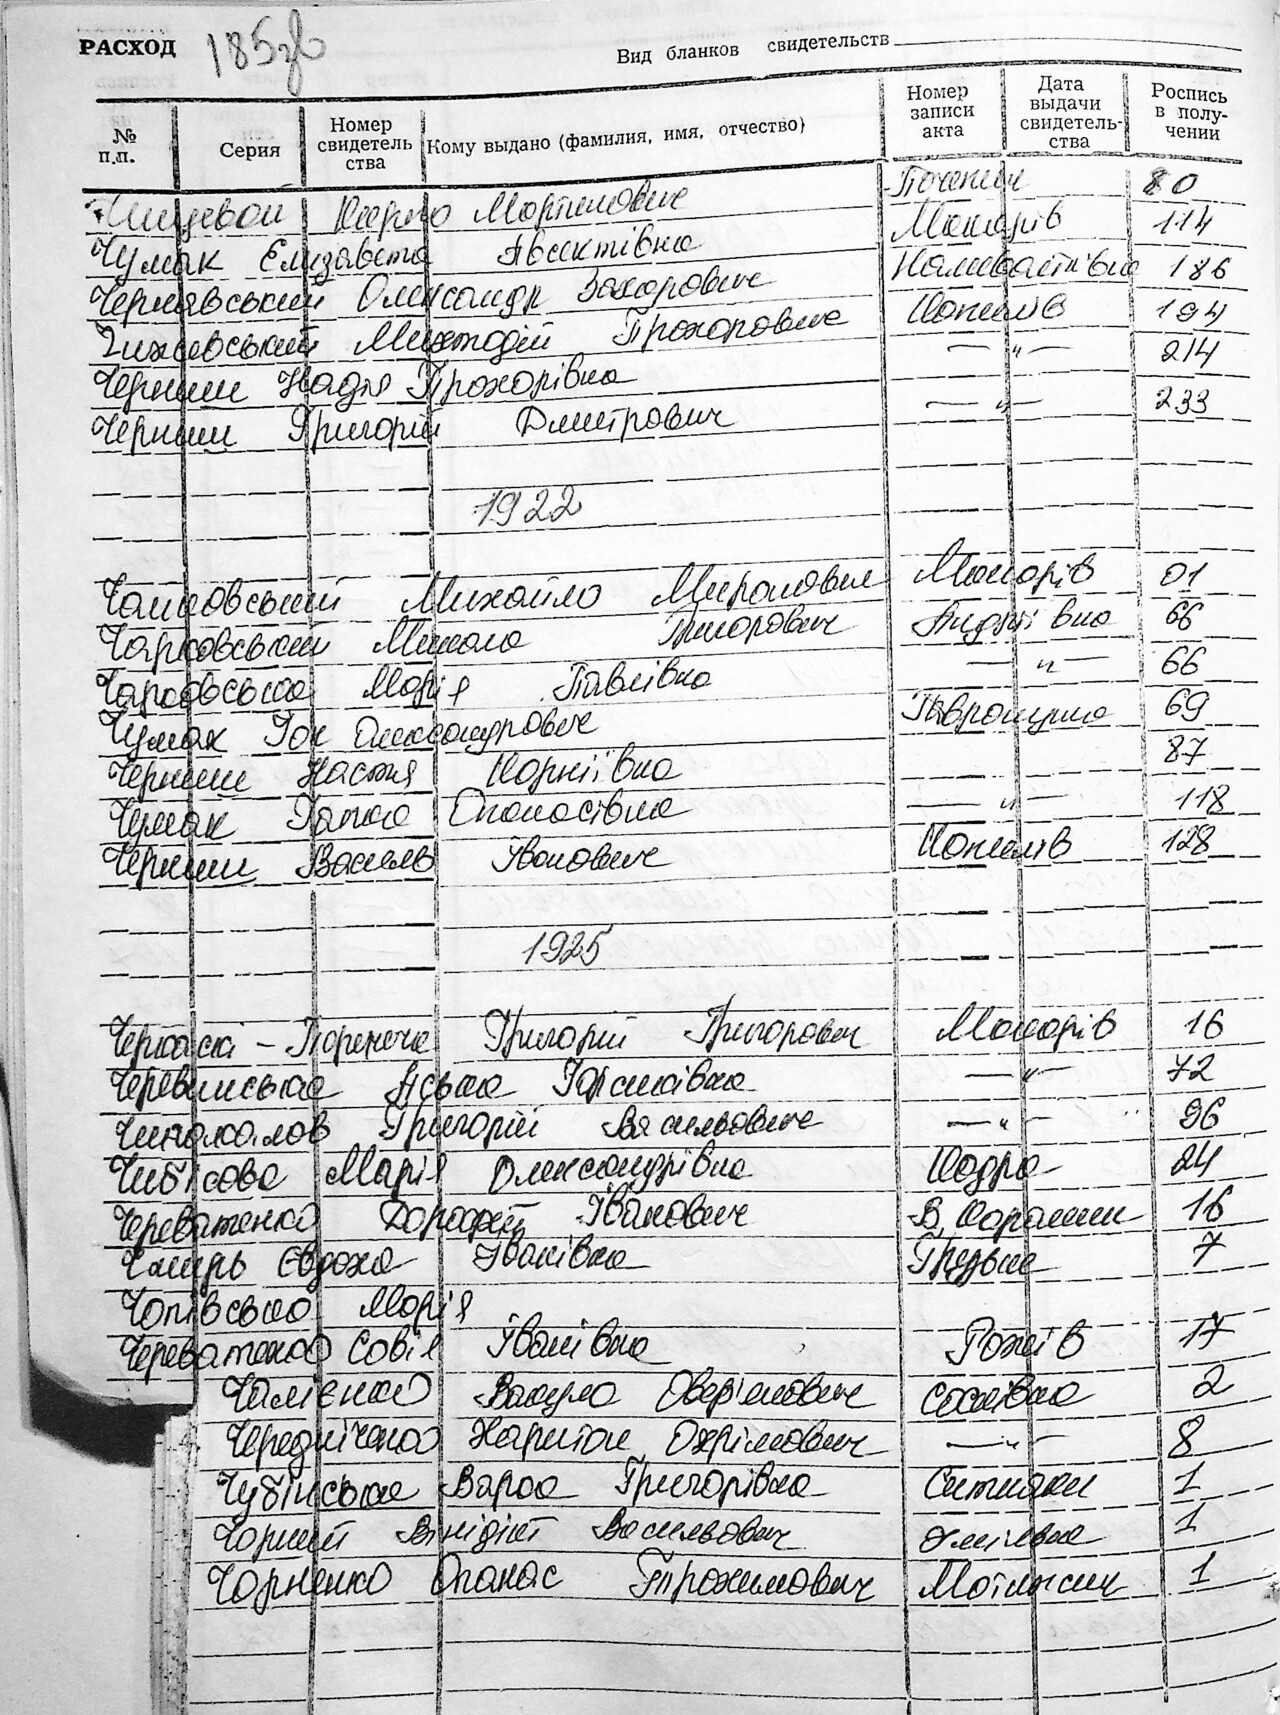 РАСХОД 185зв
Вид бланков свидетельств
№ п.п. Серия Номер свидетельства Кому выдано (фамилия, имя, отчество) Номер записи акта Дата выдачи свидетельства Роспись в получении
Кирило Мартинович Почепин 80
Чумак Елизавета Авсектівна Макарів 114
Чернявський Олександр Захарович Наливайківка 186
Чижевський Мехтодій Прохорович Копилів 194
Черниш Надія Прохорівна — " — 214
Черниш Григорій Дмитрович — " — 233
1922
Чайковський Михайло Миронович Макарів 01
Чарковський Микола Григорович Андріївка 66
Чарковська Марія Павлівна — " — 66
Чумак Іон Олександрович Гавронщина 69
Черниш Настя Корніївна 87
Чумак Ганна Опанасівна — " — 118
Черниш Василь Іванович Копилів 128
1925
Григорій Григорович Макарів 16
Черевинська Яська — " — 72
Григорій Васильович — " — 96
Чибісова Марія Олександрівна Кодра 24
Череватенко Дорофей Іванович В. Карашин 16
Євдоха Іванівна Грузьке 7
Чопівська Марія
Череватенко Совія Іванівна Рожів 17
Чаленко Вакула Овер'янович Соснівка 2
Чередніченко Харитон Охрімович — " — 8
Чубінська Варка Григорівна Ситняки 1
Чорний Васильович 1
Чорненко Опанас Трохимович Мотижин 1